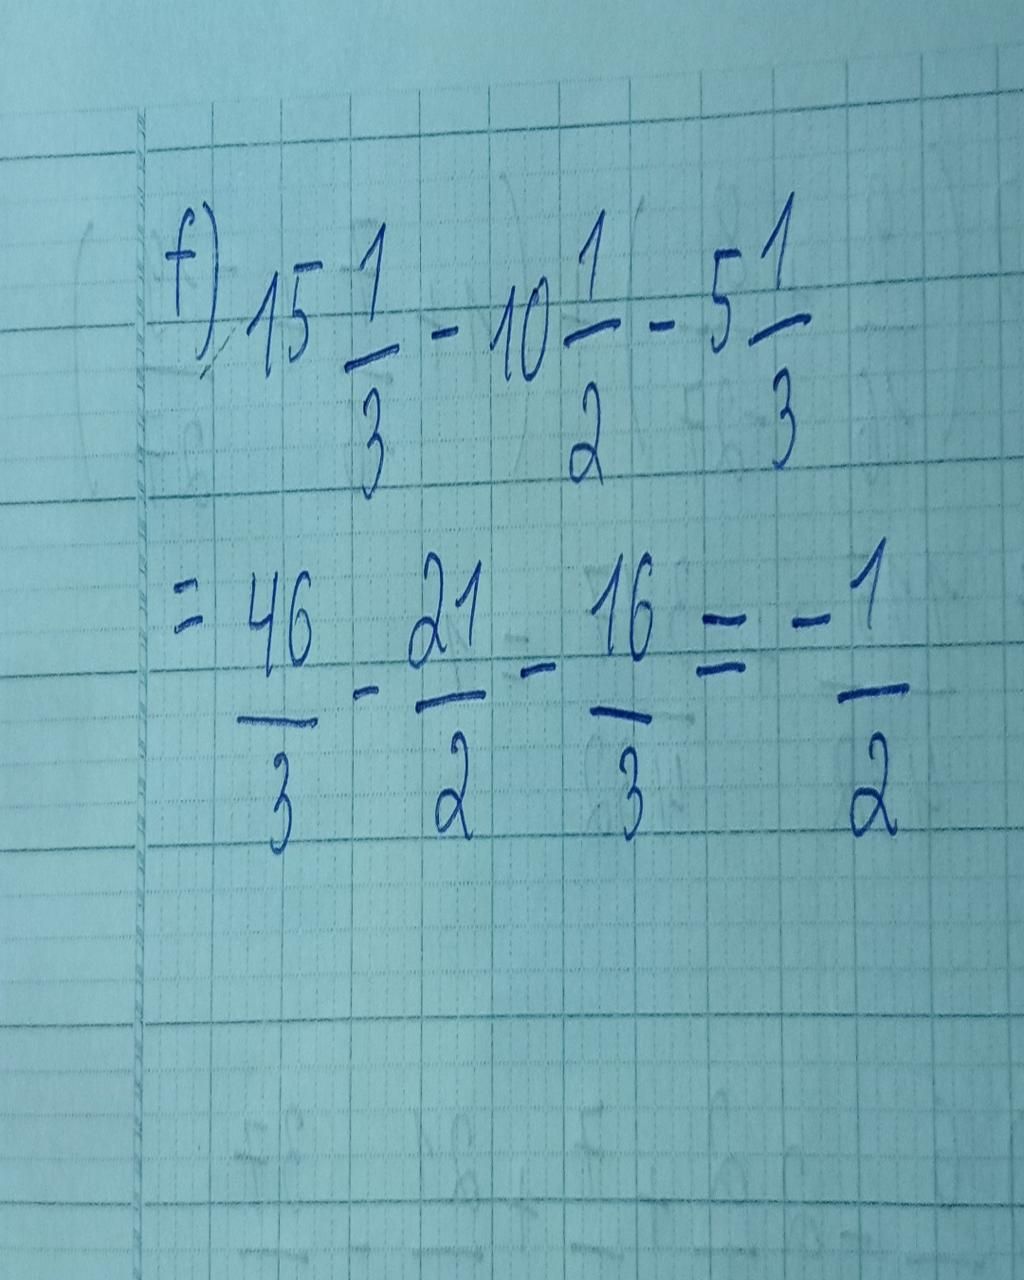 f) 15 1/3 - 10 1/2 - 5 1/3
= 46/3 - 21/2 - 16/3 = - 1/2